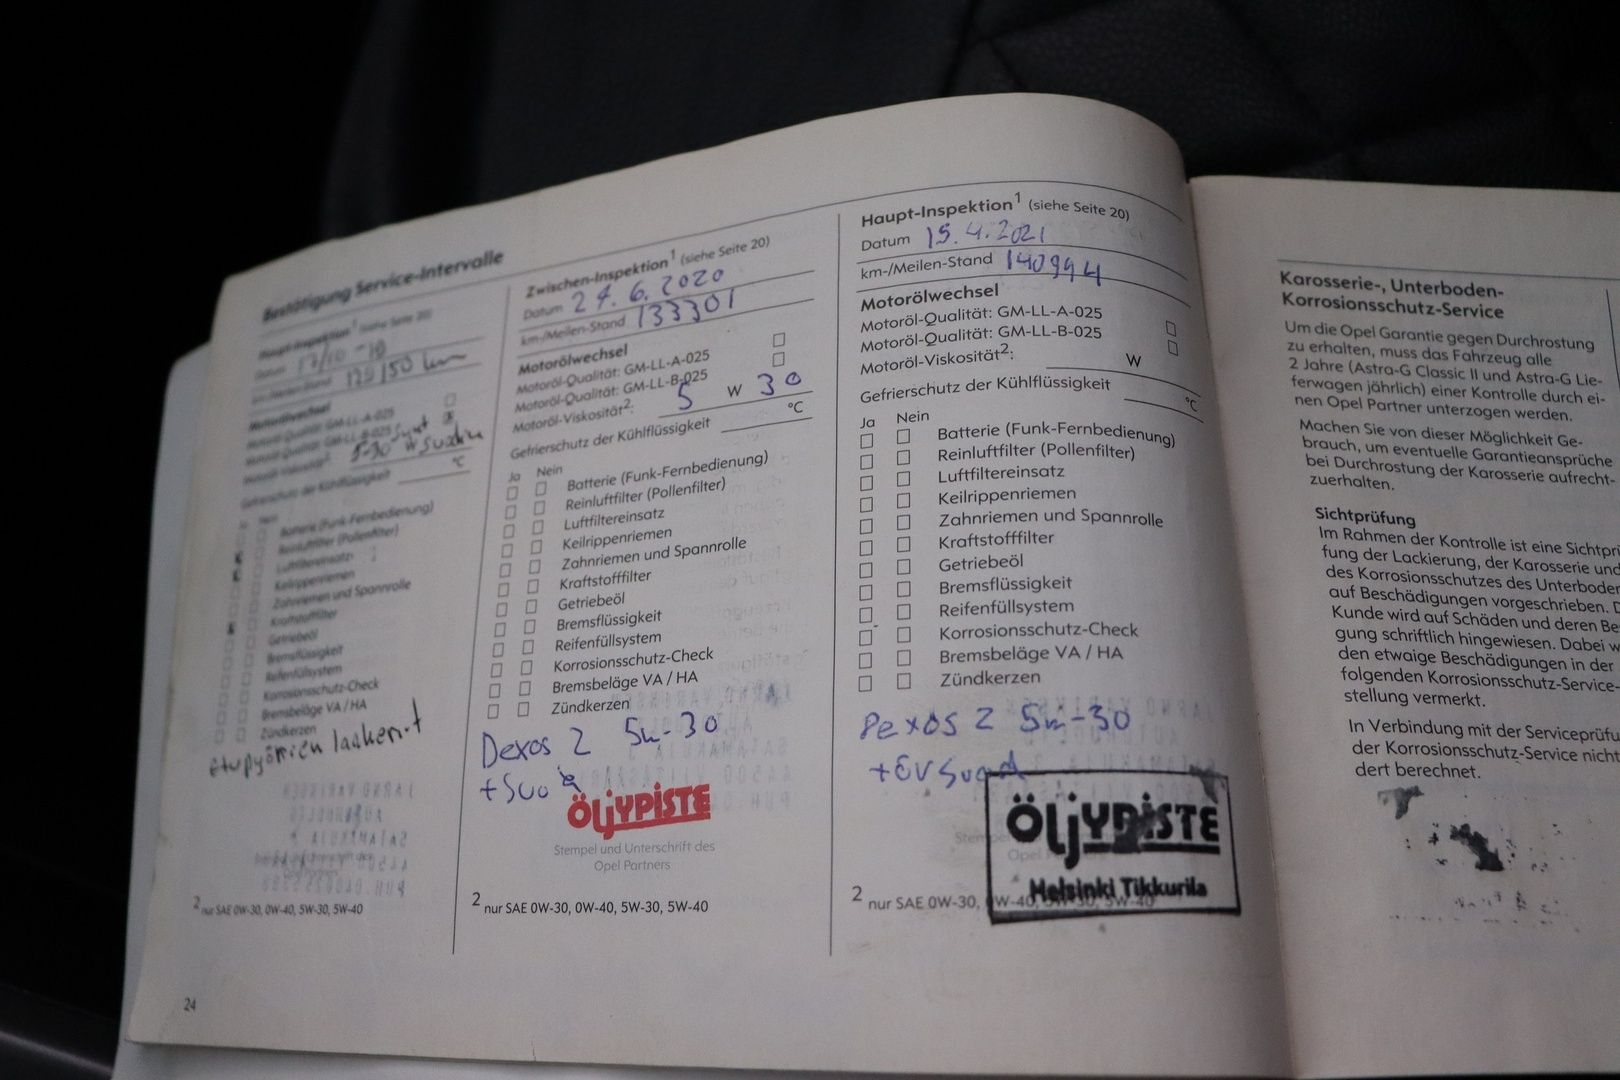 Bestätigung Service-Intervalle
Haupt-Inspektion¹ (siehe Seite 20)
Datum 17/10 -18
km-/Meilen-Stand km
Motorölwechsel
Motoröl-Qualität: GM-LL-A-025
Motoröl-Qualität: GM-LL-B-025
Motoröl-Viskosität²: 5-30
Gefrierschutz der Kühlflüssigkeit °C
Ja Nein
Batterie (Funk-Fernbedienung)
Reinluftfilter (Pollenfilter)
Luftfiltereinsatz
Keilrippenriemen
Zahnriemen und Spannrolle
Kraftstofffilter
Getriebeöl
Bremsflüssigkeit
Reifenfüllsystem
Korrosionsschutz-Check
Bremsbeläge VA / HA
Zündkerzen
2 nur SAE 0W-30, 0W-40, 5W-30, 5W-40
24
Zwischen-Inspektion¹ (siehe Seite 20)
Datum 6.2020
km-/Meilen-Stand 133301
Motorölwechsel
Motoröl-Qualität: GM-LL-A-025
Motoröl-Qualität: GM-LL-B-025
Motoröl-Viskosität²: 5 W 30
Gefrierschutz der Kühlflüssigkeit °C
Ja Nein
Batterie (Funk-Fernbedienung)
Reinluftfilter (Pollenfilter)
Luftfiltereinsatz
Keilrippenriemen
Zahnriemen und Spannrolle
Kraftstofffilter
Getriebeöl
Bremsflüssigkeit
Reifenfüllsystem
Korrosionsschutz-Check
Bremsbeläge VA / HA
Zündkerzen
Dexos 2 5w-30
ÖLJYPISTE
Stempel und Unterschrift des
Opel Partners
2 nur SAE 0W-30, 0W-40, 5W-30, 5W-40
Haupt-Inspektion¹ (siehe Seite 20)
Datum 15.4.2021
km-/Meilen-Stand 140994
Motorölwechsel
Motoröl-Qualität: GM-LL-A-025
Motoröl-Qualität: GM-LL-B-025
Motoröl-Viskosität²: W
Gefrierschutz der Kühlflüssigkeit °C
Ja Nein
Batterie (Funk-Fernbedienung)
Reinluftfilter (Pollenfilter)
Luftfiltereinsatz
Keilrippenriemen
Zahnriemen und Spannrolle
Kraftstofffilter
Getriebeöl
Bremsflüssigkeit
Reifenfüllsystem
Korrosionsschutz-Check
Bremsbeläge VA / HA
Zündkerzen
Dexos 2 5w-30
ÖLJYPISTE
Helsinki Tikkurila
2 nur SAE 0W-30, 0W-40, 5W-30, 5W-40
Karosserie-, Unterboden-
Korrosionsschutz-Service
Um die Opel Garantie gegen Durchrostung
zu erhalten, muss das Fahrzeug alle
2 Jahre (Astra-G Classic II und Astra-G Lie-
ferwagen jährlich) einer Kontrolle durch ei-
nen Opel Partner unterzogen werden.
Machen Sie von dieser Möglichkeit Ge-
brauch, um eventuelle Garantieansprüche
bei Durchrostung der Karosserie aufrecht-
zuerhalten.
Sichtprüfung
Im Rahmen der Kontrolle ist eine Sichtprü
fung der Lackierung, der Karosserie und
des Korrosionsschutzes des Unterboden
auf Beschädigungen vorgeschrieben. D
Kunde wird auf Schäden und deren Be
gung schriftlich hingewiesen. Dabei w
den etwaige Beschädigungen in der
folgenden Korrosionsschutz-Service-
stellung vermerkt.
In Verbindung mit der Serviceprüfu
der Korrosionsschutz-Service nicht
dert berechnet.